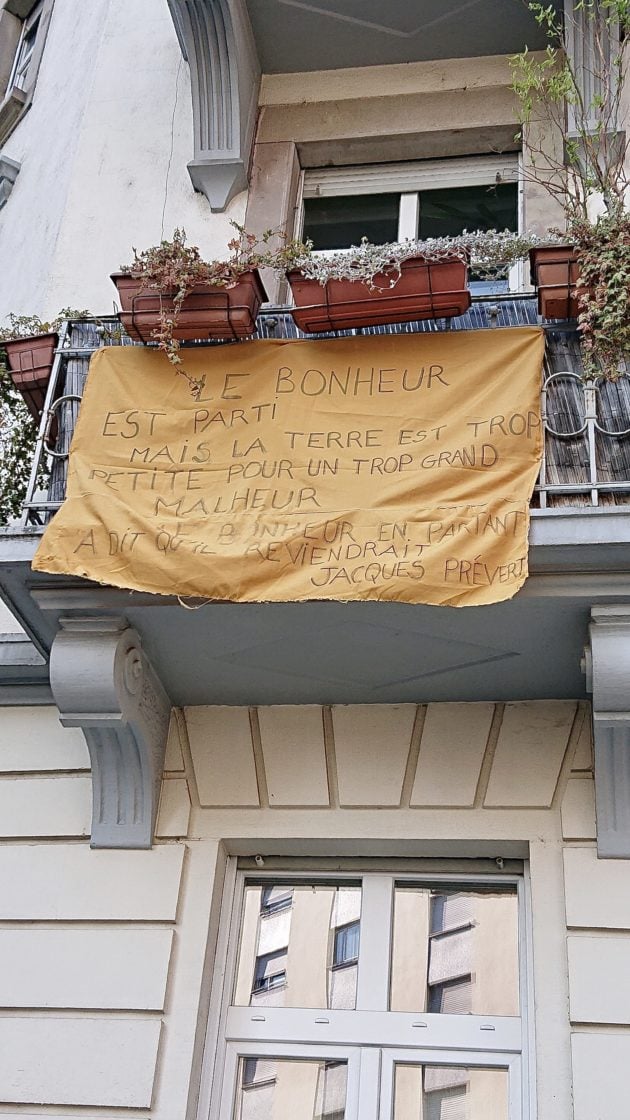 LE BONHEUR
EST PARTI
MAIS LA TERRE EST TROP
PETITE POUR UN TROP GRAND
MALHEUR
LE BONHEUR EN PARTANT
A DIT QU'IL REVIENDRAIT
JACQUES PRÉVERT